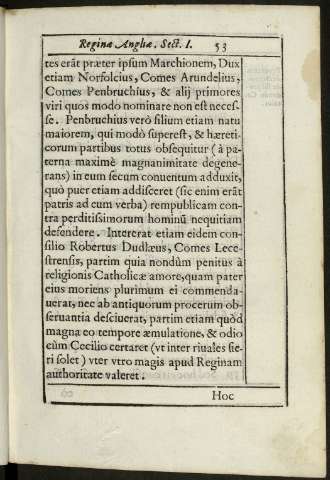 Reginæ Angliæ. Sect. I. 53
tes erãt præter ipsum Marchionem, Dux
etiam Norfolcius, Comes Arundelius,
Comes Penbruchius, & alij primores
viri quos modo nominare non est neces-
se. Penbruchius verò filium etiam natu
maiorem, qui modò superest, & hæreti-
corum partibus totus obsequitur (à pa-
terna maximè magnanimitate degene-
rans) in eum secum conuentum adduxit,
quò puer etiam addisceret (sic enim erãt
patris ad eum verba) rempublicam con-
tra perditissimorum hominũ nequitiam
defendere. Intererat etiam eidem con-
silio Robertus Dudlæus, Comes Lece-
strensis, partim quia nondùm penitus à
religionis Catholicæ amore, quam pater
eius moriens plurimum ei commenda-
uerat, nec ab antiquorum procerum ob-
seruantia desciuerat, partim etiam quòd
magna eo tempore æmulatione, & odio
cũm Cecilio certaret (vt inter riuales fie-
ri solet) vter vtro magis apud Reginam
authoritate valeret.
Hoc